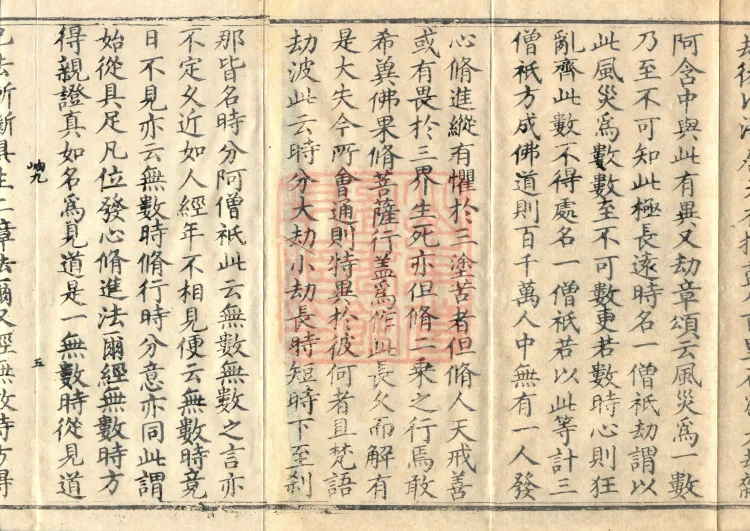 阿含中與此有異又劫章頌云風災爲一數
乃至不可知此極長遠時名一僧祇劫謂以
此風災爲數數至不可數更若數時心則狂
亂齊此數不得處名一僧祇若以此等計三
僧祇方成佛道則百千萬人中無有一人發
心脩進縱有懼於三塗苦者但脩人天戒善
或有畏於三界生死亦但脩二乗之行焉敢
希冀佛果脩菩薩行盖爲作此長久而解有
是大失今所會通則特異於彼何者且梵語
劫波此云時分大劫小劫長時短時下至刹
那皆名時分阿僧祇此云無數無數之言亦
不定久近如人經年不相見便云無數時竟
日不見亦云無數時脩行時分意亦同此謂
始從具足凡位發心脩進法爾經無數時方
得親證真如名爲見道是一無數時從見道
岫九
五
已法所斷具生二章法爾又經無數時方得